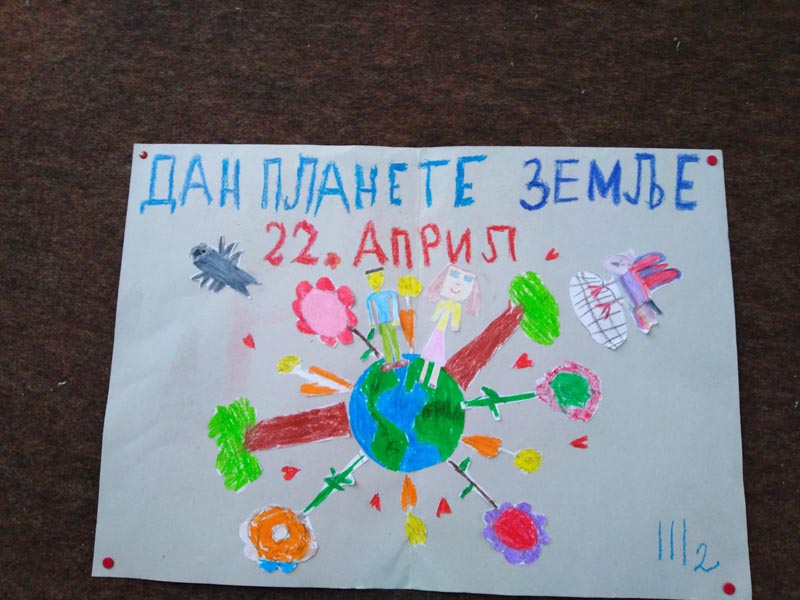 ДАН ПЛАНЕТЕ ЗЕМЉЕ
22. АПРИЛ
III2